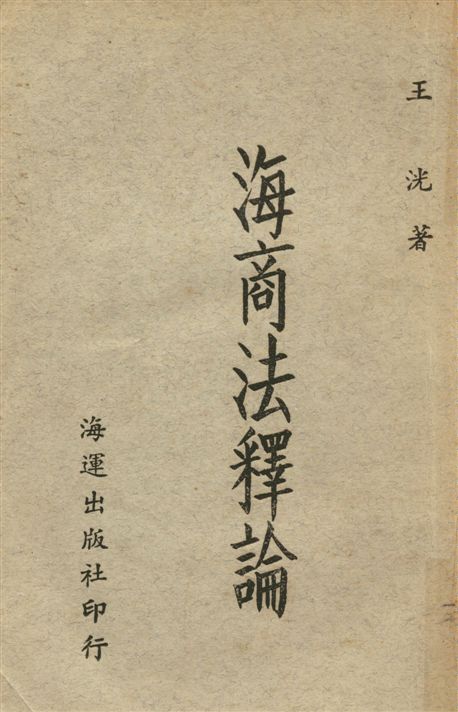 王洸著
海商法釋論
海運出版社印行